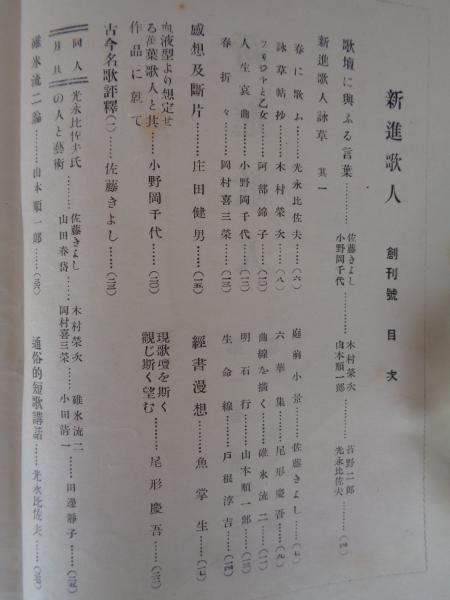 新進歌人 創刊號 目次
歌壇に與ふる言葉………佐藤きよし 小野岡千代………木村榮次 山本順一郎………菅野二郎 光永比佐夫……（四）
新進歌人詠草 其一
春に歌ふ……光永比佐夫……（六）
庭前小景……佐藤きよし……（七）
詠草帖抄……木村榮次……（八）
六華集……尾形慶吾……（九）
フリロヤと乙女……阿部錦子……（一〇）
曲線を描く……碓氷流二……（一一）
人生哀曲……小野岡千代……（一二）
明石行……山本順一郎……（一三）
春折々……岡村喜三榮……（一三）
生命線……戸根淳吉……（一四）
感想及斷片………庄田健男……（一五）
經書漫想………魚掌生……（一七）
血液型より想定せる萬葉歌人と其作品に就て……小野岡千代……（二〇）
現歌壇を斯く觀じ斯く望む……尾形慶吾……（二二）
古今名歌評釋（一）……佐藤きよし……（二三）
同人月旦 光永比佐夫氏の人と藝術………佐藤きよし 山田春岱………木村榮次 岡村喜三榮………碓氷流二 小田清一………田邊靜子……（二五）
碓氷流二論………山本順一郎……（二六）
通俗的短歌講話………光永比佐夫……（二七）